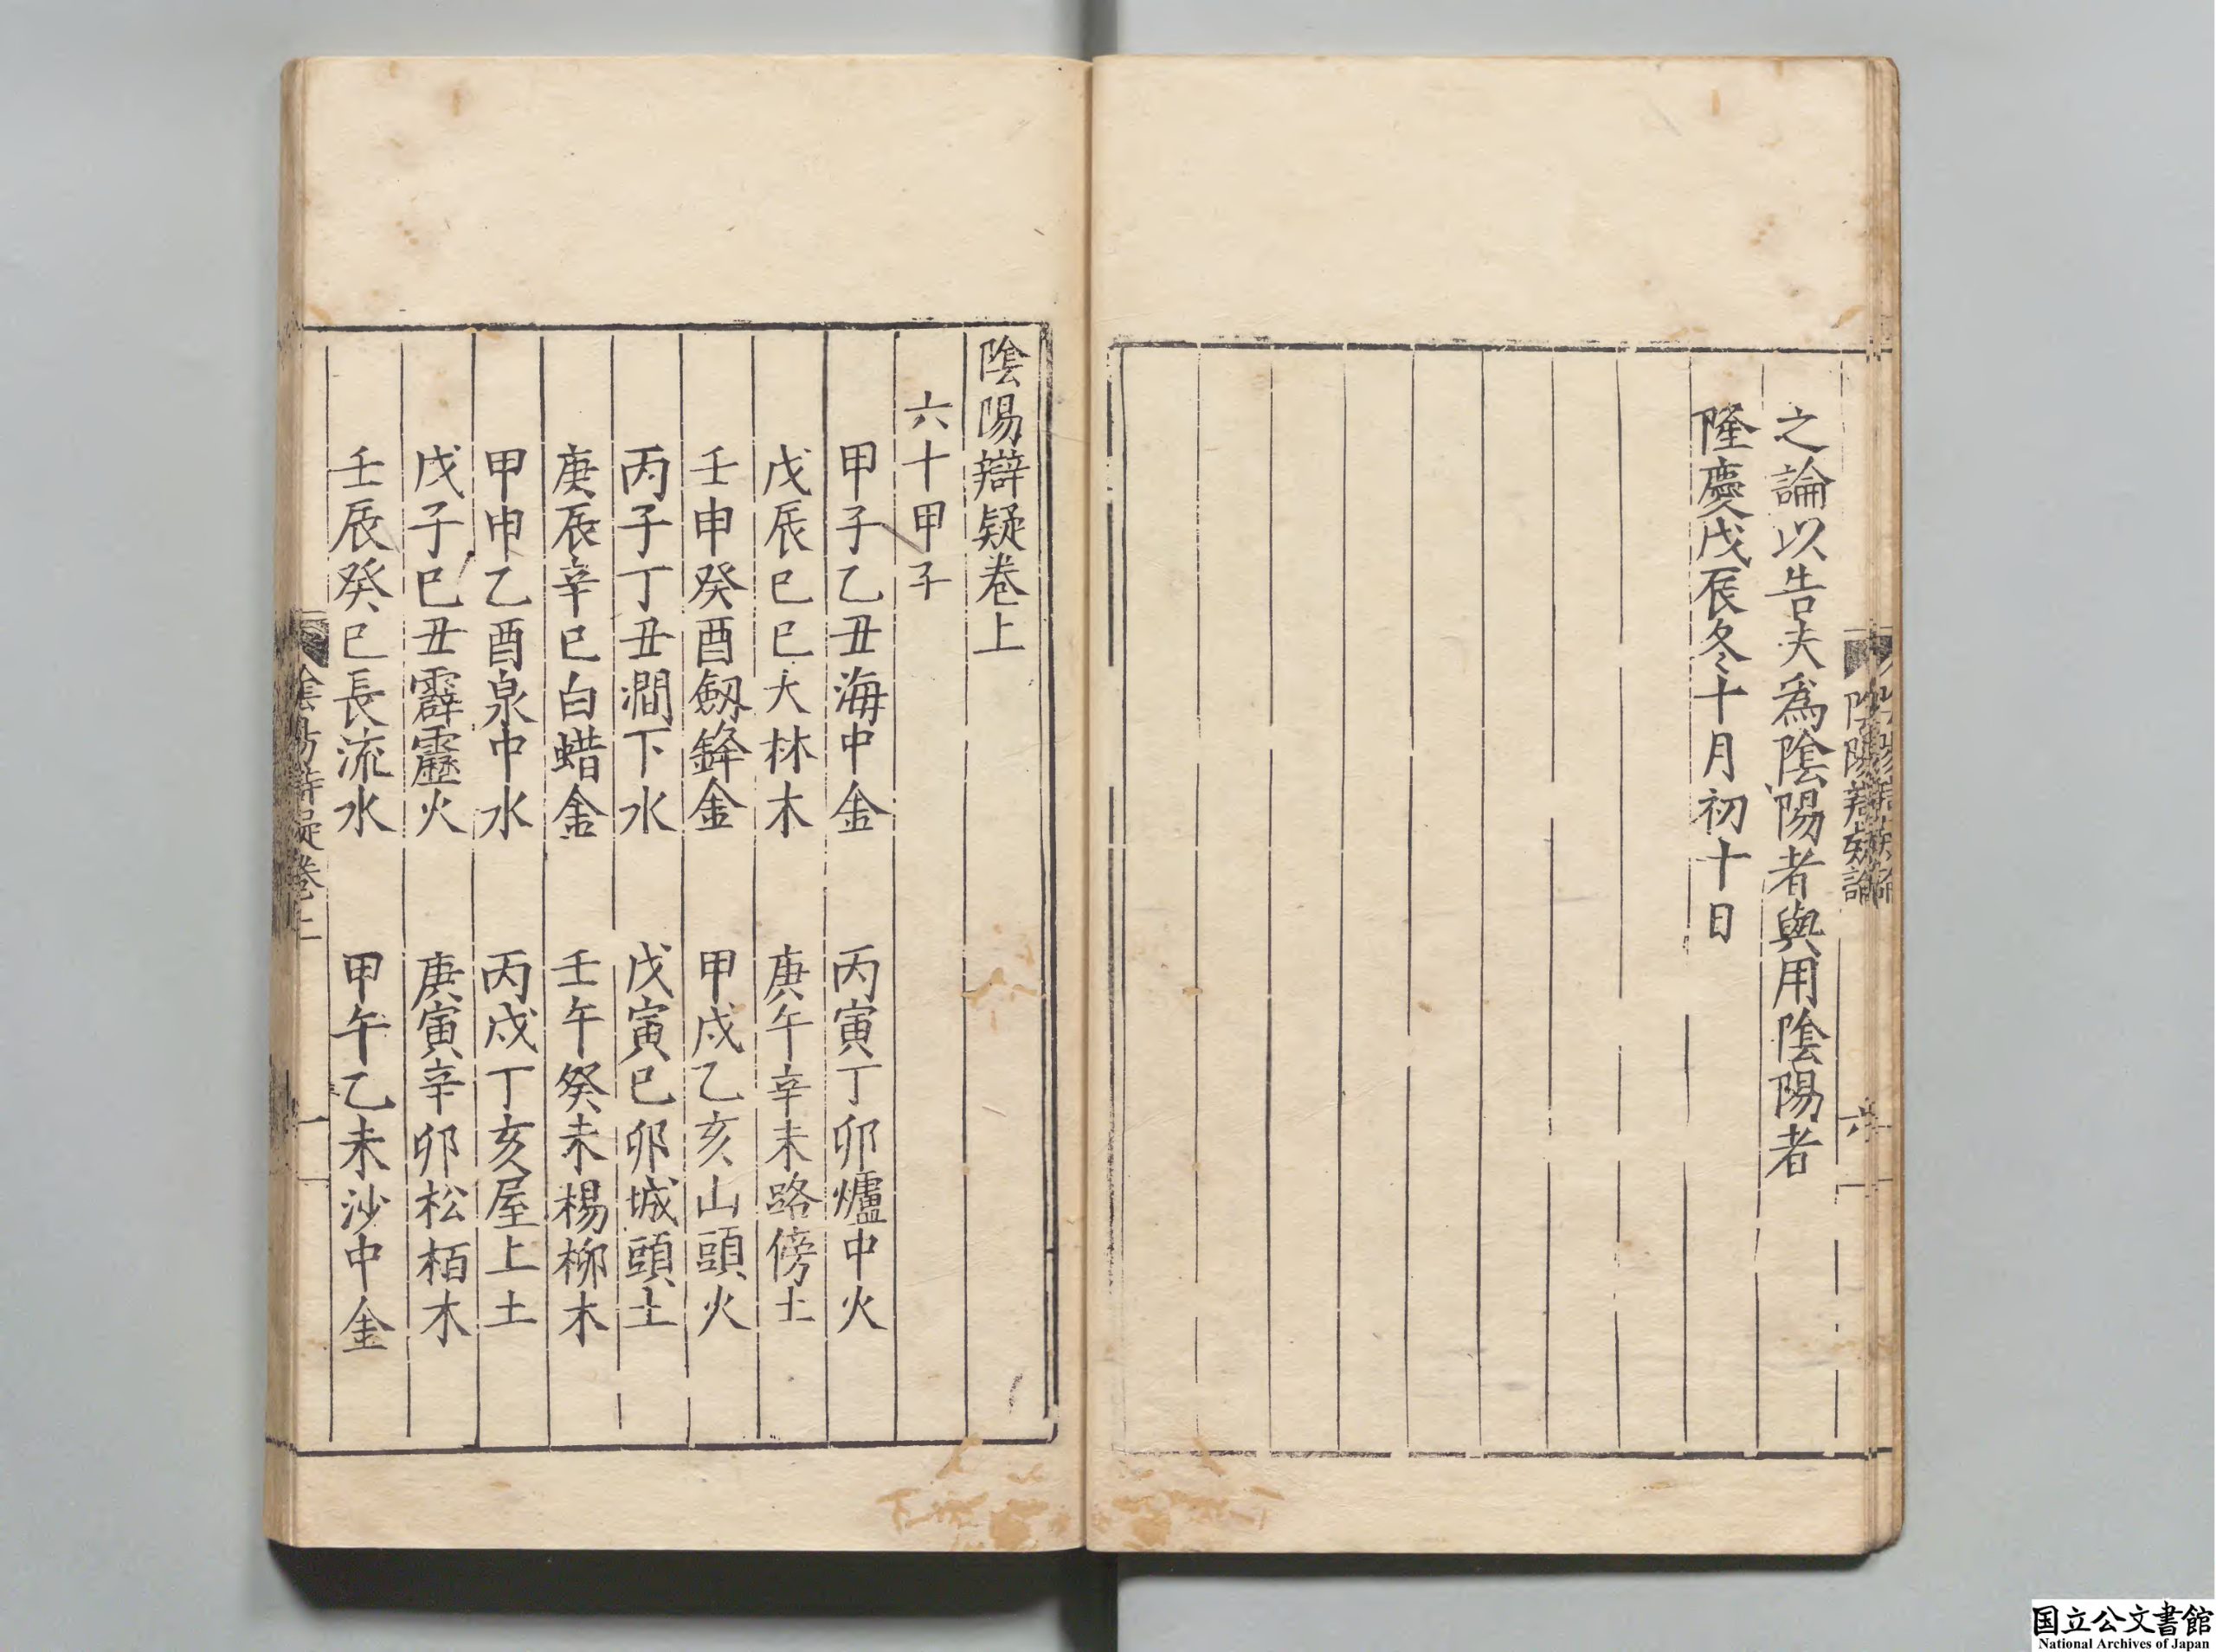 陰陽辯疑論
六
之論以告夫爲陰陽者與用陰陽者
隆慶戊辰冬十月初十日
陰陽辯疑卷上
六十甲子
甲子乙丑海中金　丙寅丁卯爐中火
戊辰巳巳大林木　庚午辛未路傍土
壬申癸酉劔鋒金　甲戌乙亥山頭火
丙子丁丑澗下水　戊寅巳卯城頭土
庚辰辛巳白蜡金　壬午癸未楊柳木
甲申乙酉泉中水　丙戌丁亥屋上土
戊子巳丑霹靂火　庚寅辛卯松栢木
壬辰癸巳長流水　甲午乙未沙中金
陰陽辯疑卷上
一
国立公文書館
National Archives of Japan